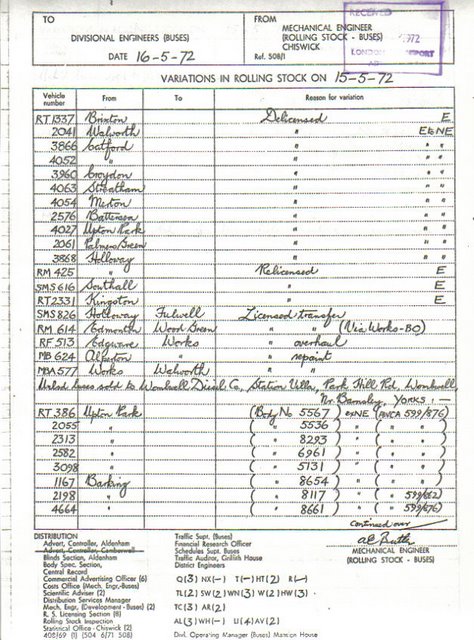 TO
DIVISIONAL ENGINEERS (BUSES)
DATE 16-5-72
FROM
MECHANICAL ENGINEER
(ROLLING STOCK - BUSES)
CHISWICK
Ref. 508/1
RECEIVED
1972
LONDON
VARIATIONS IN ROLLING STOCK ON 15-5-72
Vehicle number From To Reason for variation
RT 1337 Brixton Delicensed E
2041 Walworth " E&NE
3866 Catford " " "
4052 " " " "
3960 Croydon " " "
4063 Streatham " " "
4054 Merton " " "
2576 Battersea " " "
4027 Upton Park " " "
2061 Palmers Green " " "
3868 Holloway " " "
RM 425 " Relicensed E
SMS 616 Southall " E
RT 2331 Kingston " E
SMS 826 Holloway Fulwell Licensed transfer
RM 614 Edmonton Wood Green " " (Via Works-BO)
RF 513 Edgware Works " overhaul
MB 624 Alperton " " repaint
MBA 577 Works Walworth " "
Unlsd buses sold to Wombwell Diesel Co, Station Villa, Park Hill Rd, Wombwell,
Nr. Barnsley, YORKS :—
RT 386 Upton Park (Body No 5567) E&NE (AVCA 599/876)
2055 " ( " 5536 ) " ( " )
2313 " ( " 8293 ) " ( " )
2582 " ( " 6961 ) " ( " )
3098 " ( " 5131 ) " ( " )
1167 Barking ( " 8654 ) " ( " )
2198 " ( " 8117 ) " ( " )
4664 " ( " 8661 ) " ( " 599/876)
Continued over
MECHANICAL ENGINEER
(ROLLING STOCK - BUSES)
DISTRIBUTION
Advert, Controller, Aldenham
Advert, Controller, Camberwell
Blinds Section, Aldenham
Body Spec, Section,
Central Record
Commercial Advertising Officer (6)
Costs Office (Mech. Engr-Buses)
Scientific Adviser (2)
Distribution Services Manager
Mech. Engr, (Development - Buses) (2)
R. S. Licensing Section (8)
Rolling Stock Inspection
Statistical Office - Chiswick (2)
408/69 (1) (504 6/71 508)
Traffic Supt. (Buses)
Financial Research Officer
Schedules Supt. Buses
Traffic Auditor, Griffith House
District Engineers
Q (3) NX (-) T (-) HT (2) R (-)
TL (2) SW (2) WN (3) W (2) HW (3)
TC (3) AR (2)
AL (3) WH (-) U (4) AV (2)
Divl. Operating Manager (Buses) Mansion House